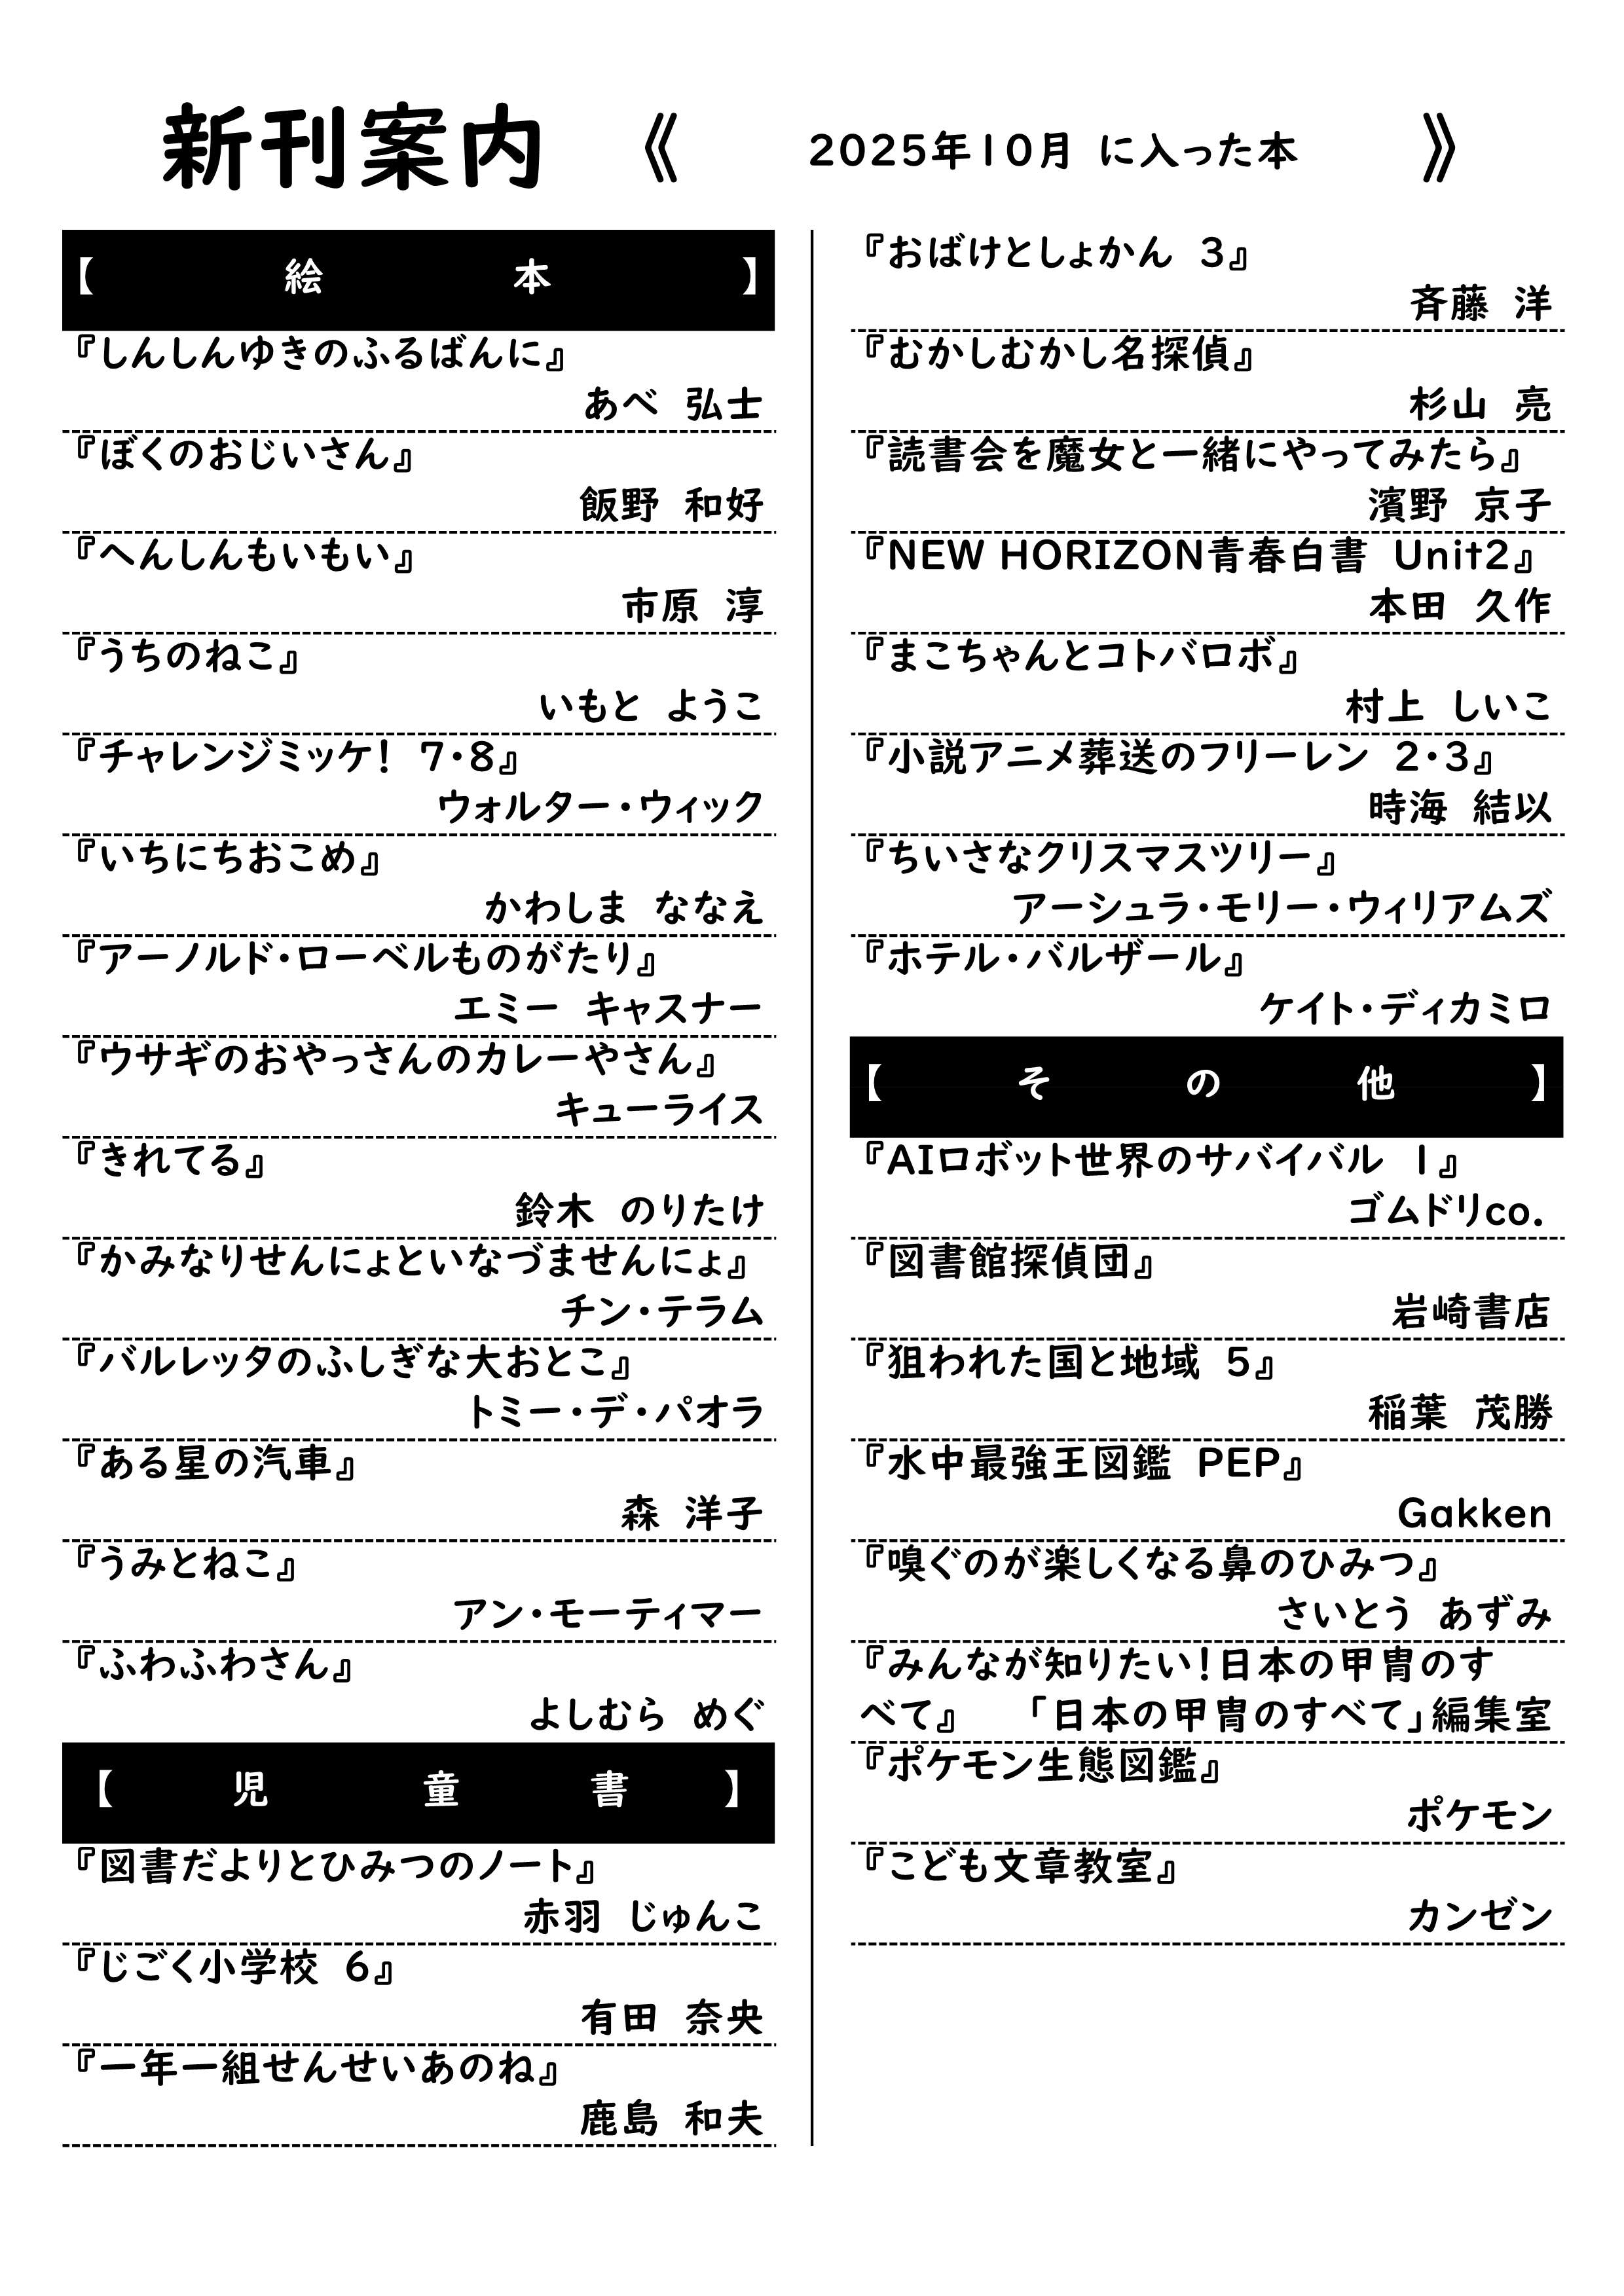 新刊案内 《 2025年10月 に入った本 》
【 絵 本 】
『しんしんゆきのふるばんに』
あべ 弘士
『ぼくのおじいさん』
飯野 和好
『へんしんもいもい』
市原 淳
『うちのねこ』
いもと ようこ
『チャレンジミッケ！ 7・8』
ウォルター・ウィック
『いちにちおこめ』
かわしま ななえ
『アーノルド・ローベルものがたり』
エミー キャスナー
『ウサギのおやっさんのカレーやさん』
キューライス
『きれてる』
鈴木 のりたけ
『かみなりせんにょといなづませんにょ』
チン・テラム
『バルレッタのふしぎな大おとこ』
トミー・デ・パオラ
『ある星の汽車』
森 洋子
『うみとねこ』
アン・モーティマー
『ふわふわさん』
よしむら めぐ
【 児 童 書 】
『図書だよりとひみつのノート』
赤羽 じゅんこ
『じごく小学校 6』
有田 奈央
『一年一組せんせいあのね』
鹿島 和夫
『おばけとしょかん 3』
斉藤 洋
『むかしむかし名探偵』
杉山 亮
『読書会を魔女と一緒にやってみたら』
濱野 京子
『NEW HORIZON青春白書 Unit2』
本田 久作
『まこちゃんとコトバロボ』
村上 しいこ
『小説アニメ葬送のフリーレン 2・3』
時海 結以
『ちいさなクリスマスツリー』
アーシュラ・モリー・ウィリアムズ
『ホテル・バルザール』
ケイト・ディカミロ
【 そ の 他 】
『AIロボット世界のサバイバル 1』
ゴムドリco.
『図書館探偵団』
岩崎書店
『狙われた国と地域 5』
稲葉 茂勝
『水中最強王図鑑 PEP』
Gakken
『嗅ぐのが楽しくなる鼻のひみつ』
さいとう あずみ
『みんなが知りたい！日本の甲冑のす
べて』 「日本の甲冑のすべて」編集室
『ポケモン生態図鑑』
ポケモン
『こども文章教室』
カンゼン